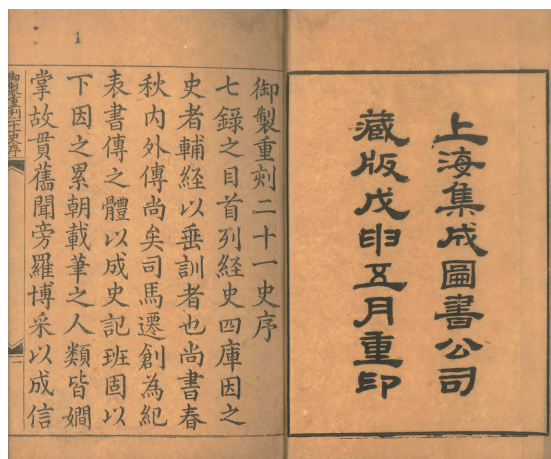 上海集成圖書公司
藏版戊申五月重印
御製重刻二十一史序
七錄之目首列經史四庫因之
史者輔經以垂訓者也尚書春
秋內外傳尚矣司馬遷創為紀
表書傳之體以成史記班固以
下因之累朝載筆之人類皆嫺
掌故貫舊聞旁羅博采以成信
御製重刻二十一史序
一
1